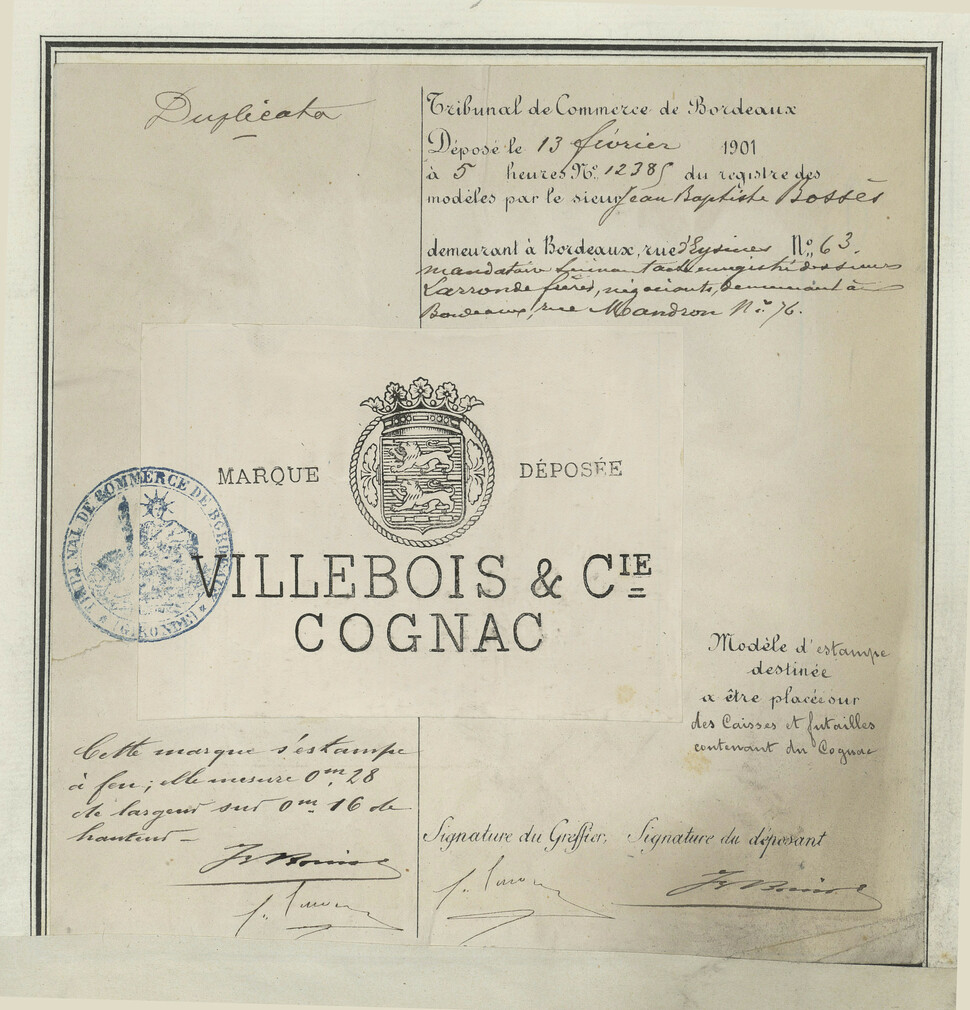 Duplicata
Tribunal de Commerce de Bordeaux
Déposé le 13 février 1901
à 5 heures No. 12385 du registre des
modèles par le sieur Jean Baptiste Bossès
demeurant à Bordeaux, rue d'Eysines No. 63.
mandataire suivant acte enregistré des sieurs
Larronde frères, négociants, demeurant à
Bordeaux, rue Mandron No. 76.
MARQUE DÉPOSÉE
TRIBUNAL DE COMMERCE DE BORDEAUX
(GIRONDE)
VILLEBOIS & CIE
COGNAC
Modèle d'estampe
destinée
a être placée sur
des Caisses et futailles
contenant du Cognac
Cette marque s'estampe
à feu; elle mesure 0m,28
de largeur sur 0m,16 de
hauteur -
Signature du Greffier, Signature du déposant